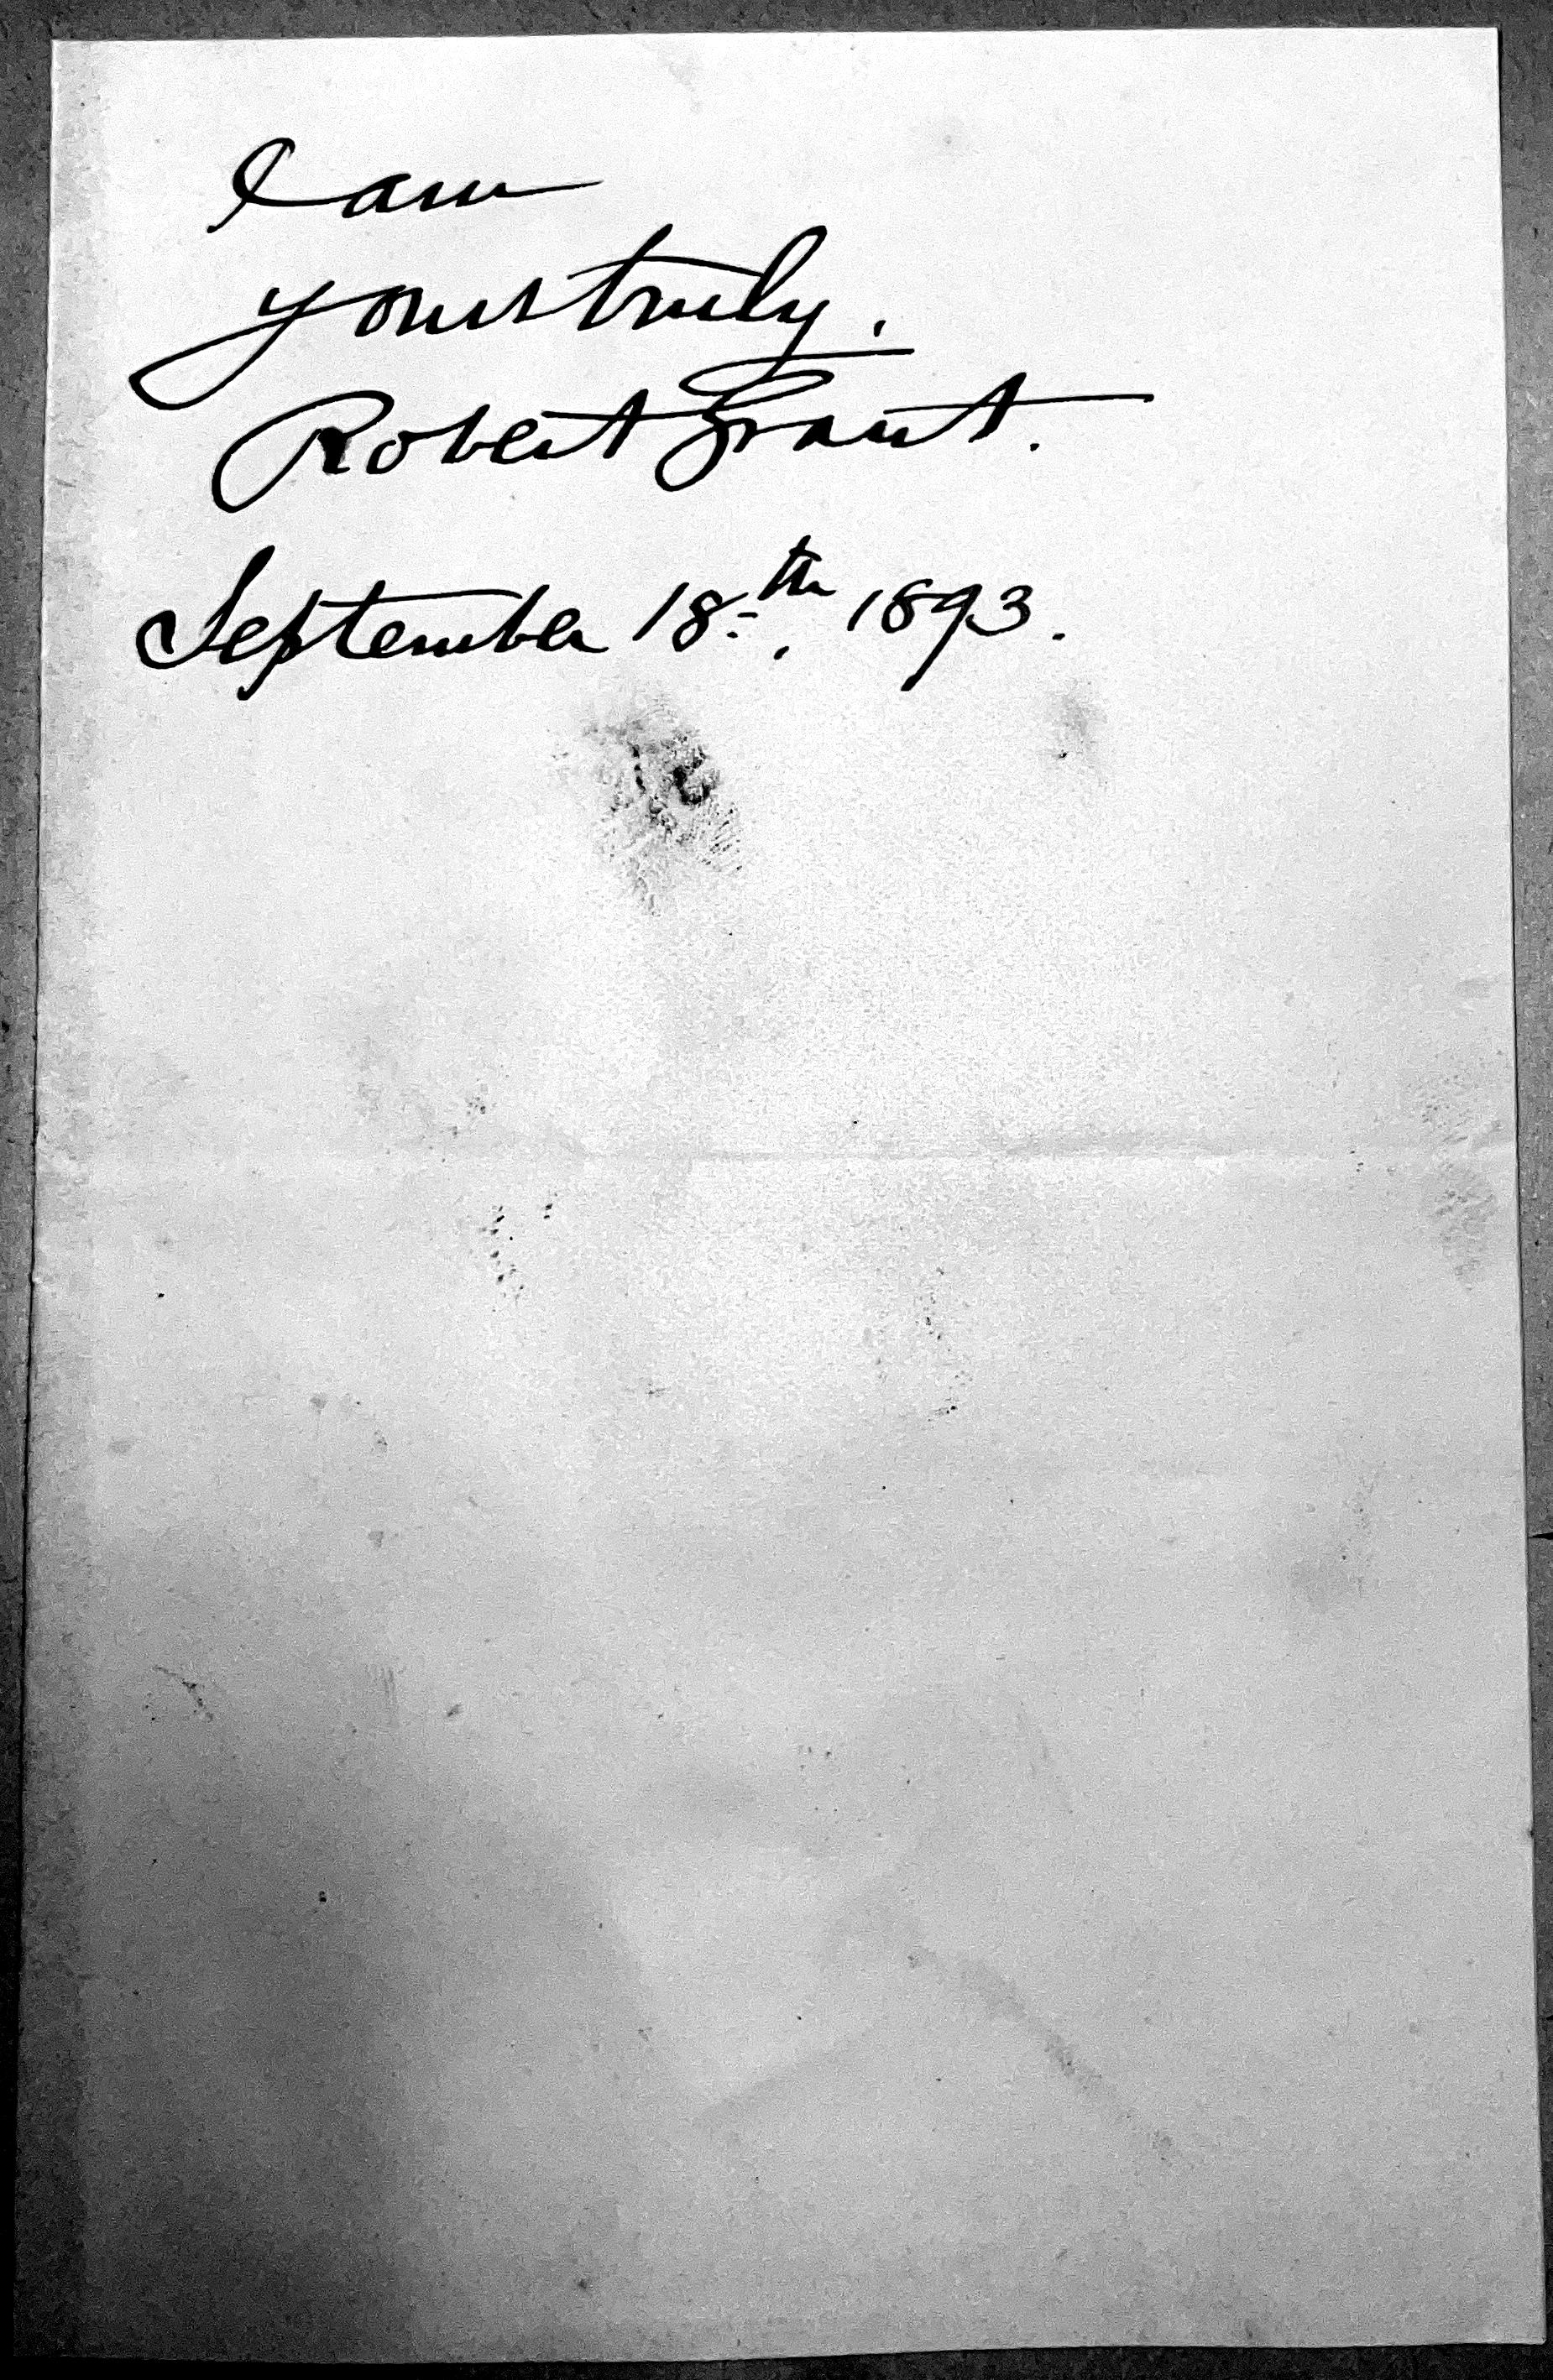 I am
yours truly.
Robert Grant.
September 18th. 1893.